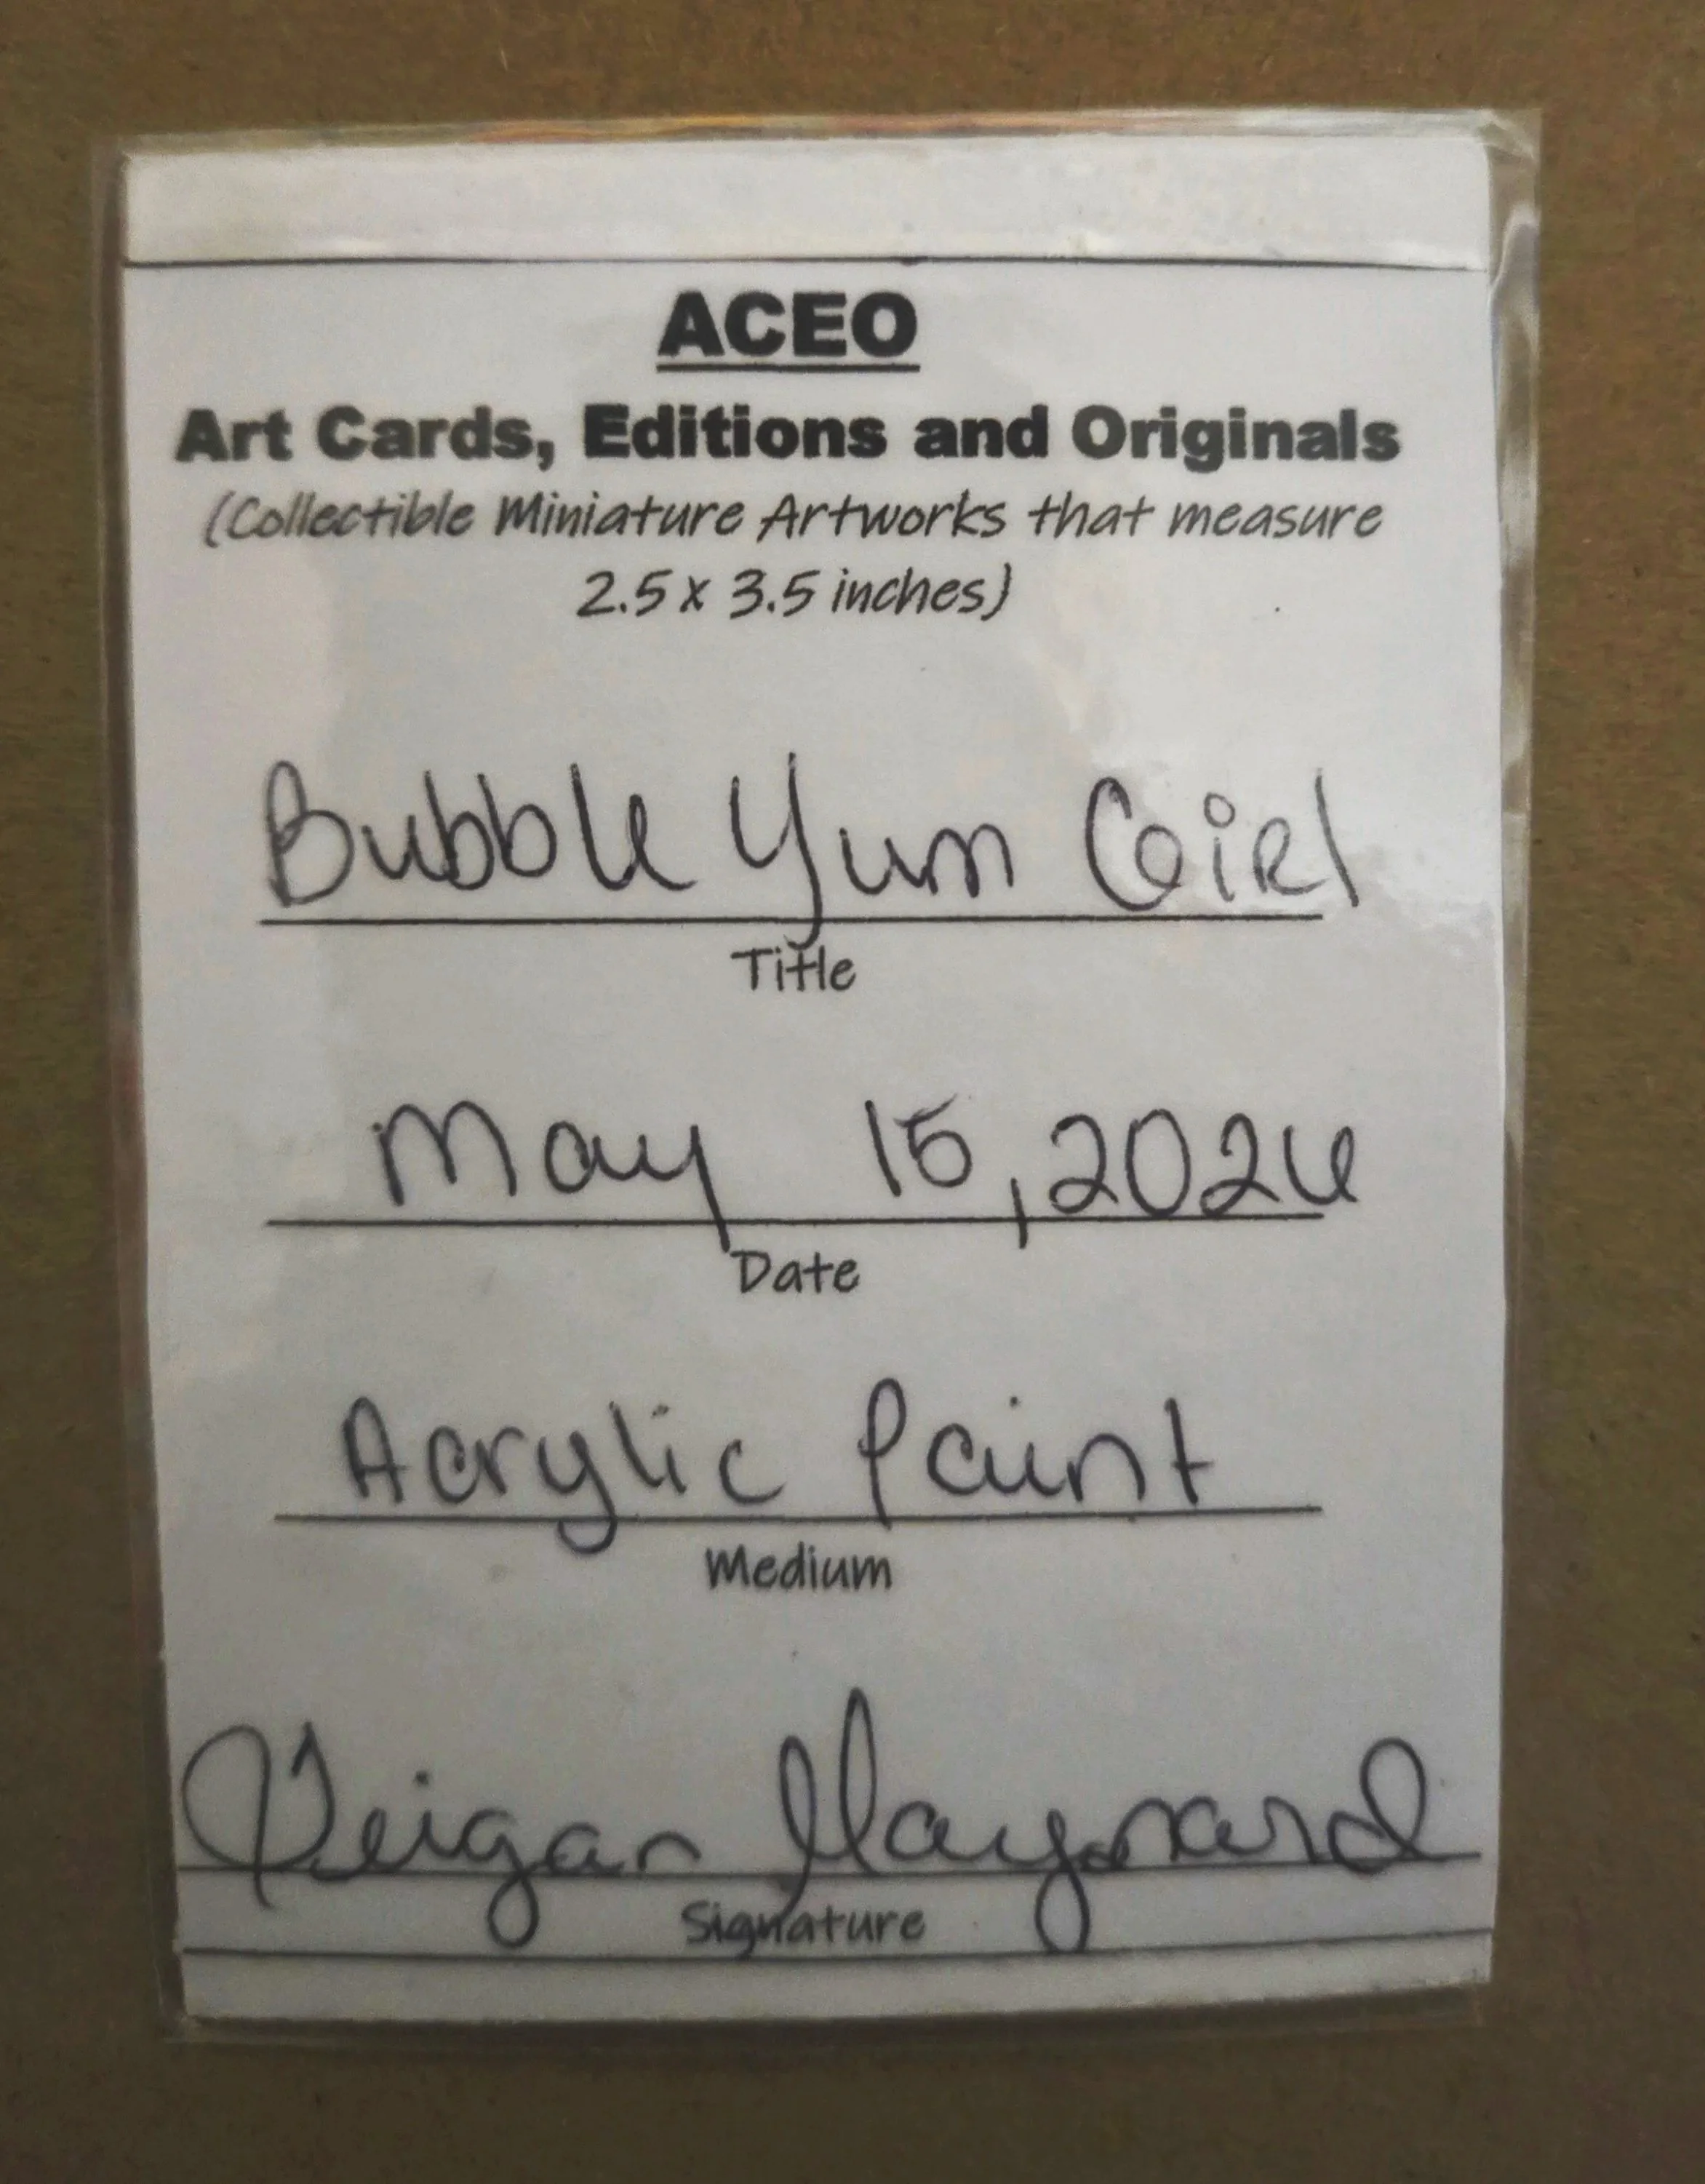 ACEO
Art Cards, Editions and Originals
(Collectible Miniature Artworks that measure
2.5 x 3.5 inches)
Bubble Yum Girl
Title
May 15, 2026
Date
Acrylic Paint
Medium
Maynard
Signature